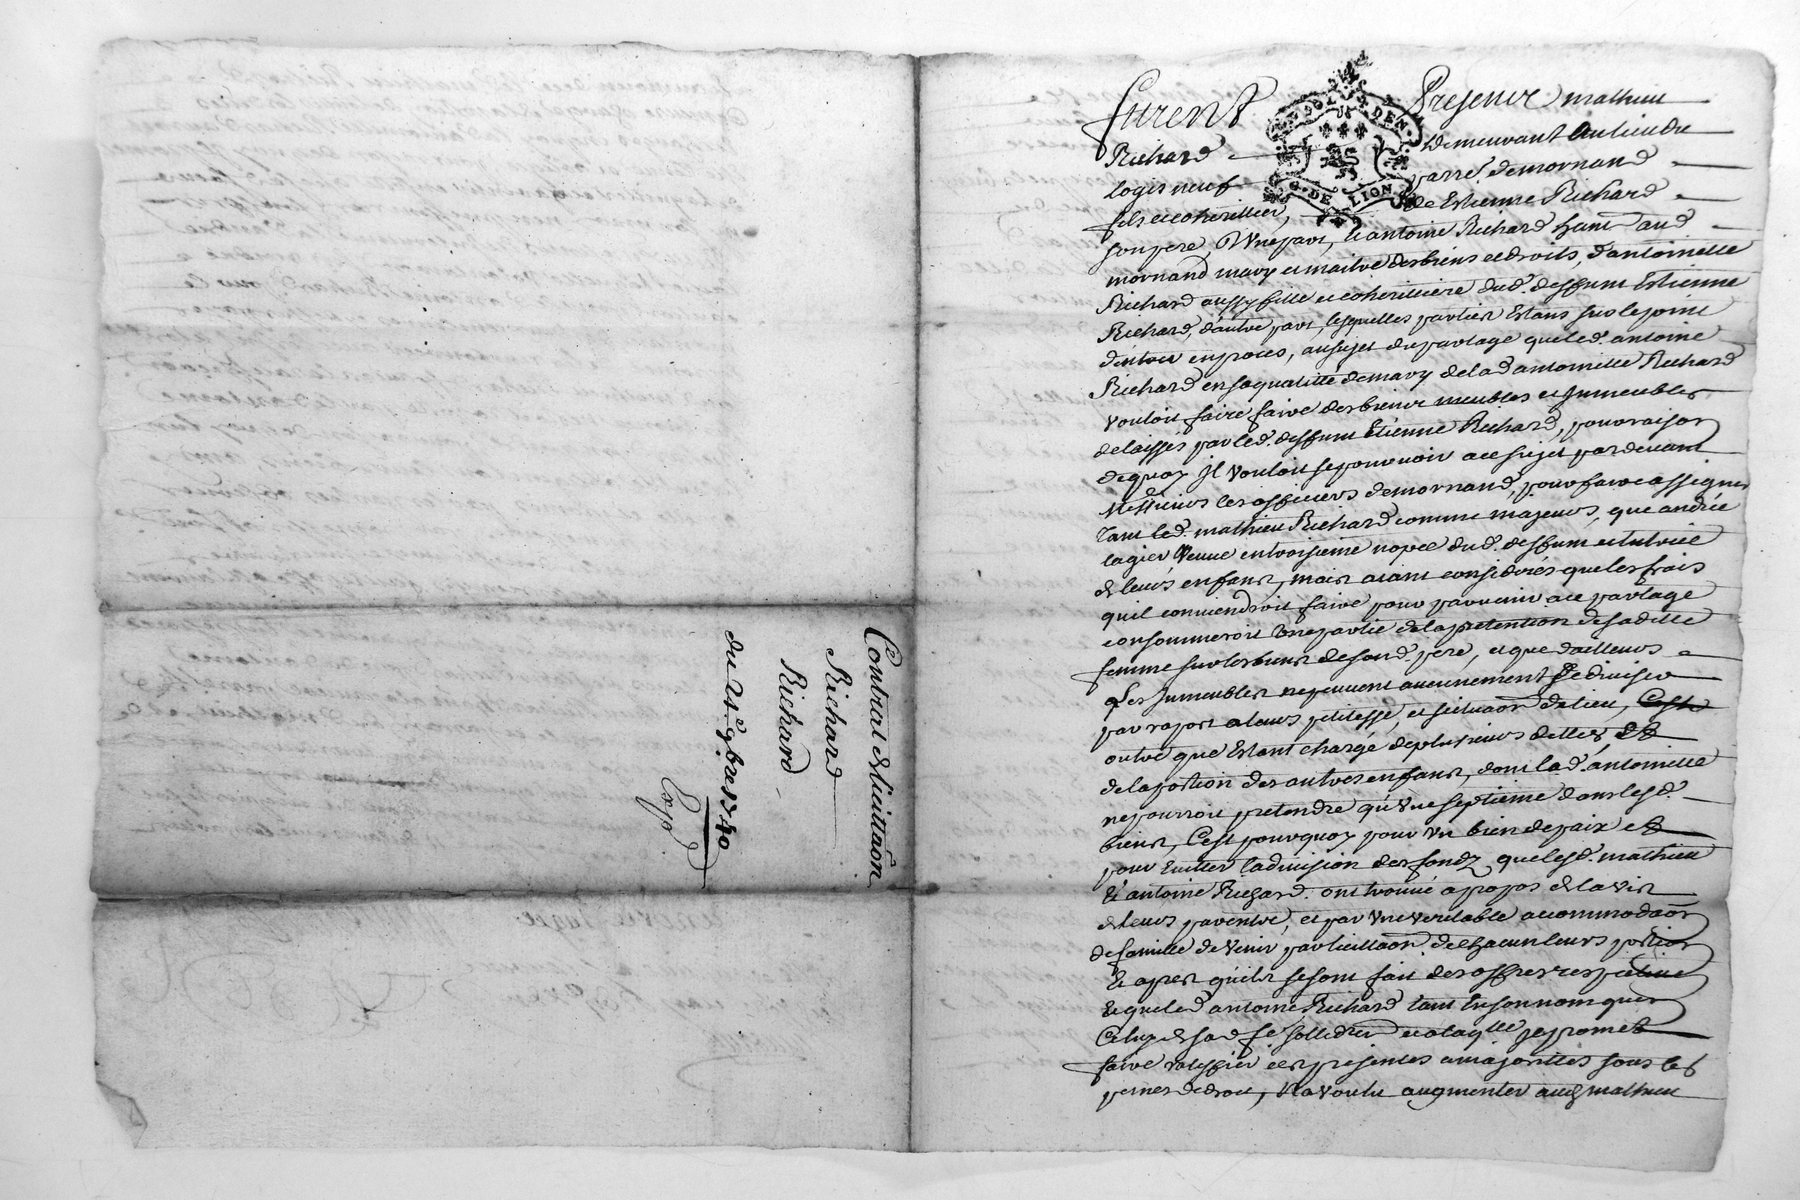 Contrat de licittaôn
Richard
Richard
du 21e 9bre 1740
Exp
furent Presents mathieu
Richard demeurant au lieu du
logis neuf parre. de mornand
fils et coherittier, de Estienne Richard
son pere, D'Une part, et antoine Richard hant aud
mornand mary et maitre des biens et droits, d'antoinette
Richard aussy fille et coherittiere dud. deffunt Estienne
Richard, d'autre part, lesquelles parties Estans sur le point
d'entrer en proces, au sujet du partage que led. antoine
Richard en sa qualitté de mary de lad antoinette Richard
vouloit faire faire des biens meubles et Immeubles
delaisses par led. deffunt Etienne Richard, pour raison
de quoy Il vouloit se pourvoir a ce sujet pardevant
Messieurs les officiers de mornand, pour faire assigner
tant led. mathieu Richard comme majeurs, que andrée
lagier Veuve en troisieme nopce dud. deffunt et tutrice
de leurs enfans, mais aiant consideres que les frais
quil conviendroit faire pour parvenir a ce partage
consommeroit Une partie de la pretention de sa ditte
femme sur les biens de son d. pere, et que d'ailleurs
Les Immeubles ne peuvent aucunement se diviser
par raport a leurs petitesse, et scituaon de lieu,
outre que Estant chargé de plusieurs dettes et
de la portion des autres enfans, dont lad. antoinette
ne pourroit pretendre qu'Une septieme dans lesd.
biens, C'est pourquoy pour Un bien de paix et
pour Eviter la division des fondz que lesd. mathieu
Et antoine Richard. ont trouvé a propos de lavis
de leurs parentée, et par Une veritable accommodaôn
de famille de Venir par licittaôn de chacun leurs portion
Et apres qu'ils se sont fait des offres respective
Et que led antoine Richard tant En son nom que
Celuy de sad fe solledrer et a laqlle Il promet
faire ratiffier ces presentes a majorittés sous les
peines de droit, N'a voulu augmenter aud mathieu